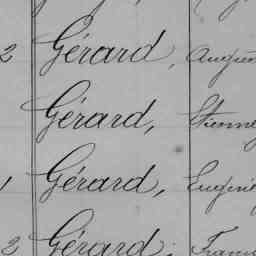 2 Gérard, Augus
Gérard, Etienne
1 Gérard, Eugéni
2 Gérard, Franç